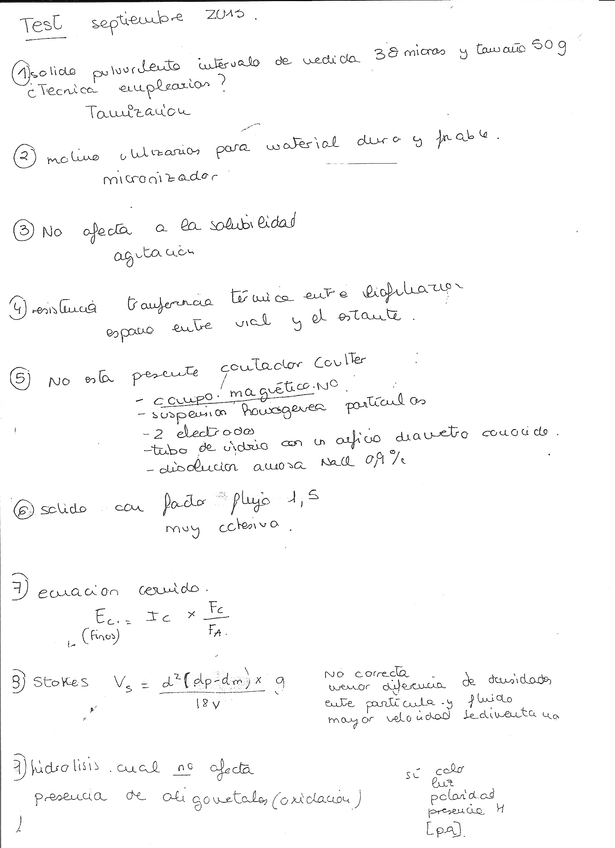 Test septiembre 2015.
① solido pulvurulento intervalo de medida 38 micras y tamaño 50g
¿Tecnica emplearias?
Tamización
② molino utilizarias para material duro y friable.
micronizador
③ No afecta a la solubilidad
agitación
④ resistencia tranferencia térmica entre
espacio entre vial y el estante.
⑤ No esta presente contador Coulter
- campo magnético. No
- suspension homogenea particulas
- 2 electrodos
- tubo de vidrio con un orificio diametro conocido.
- disolucion acuosa NaCl 0,9%
⑥ solido con factor flujo 1,5
muy cohesiva.
7) ecuacion cernido.
Ec. = Ic × Fc / FA.
(Finos)
8) Stokes Vs = d²(dp-dm) × g / 18 v
No correcta
menor diferencia de densidades
ente particula y fluido
mayor velocidad sedimenta
9) hidrolisis. cual no afecta
presencia de oligometales (oxidación)
si calor
luz
polaridad
presencia H
[pa].